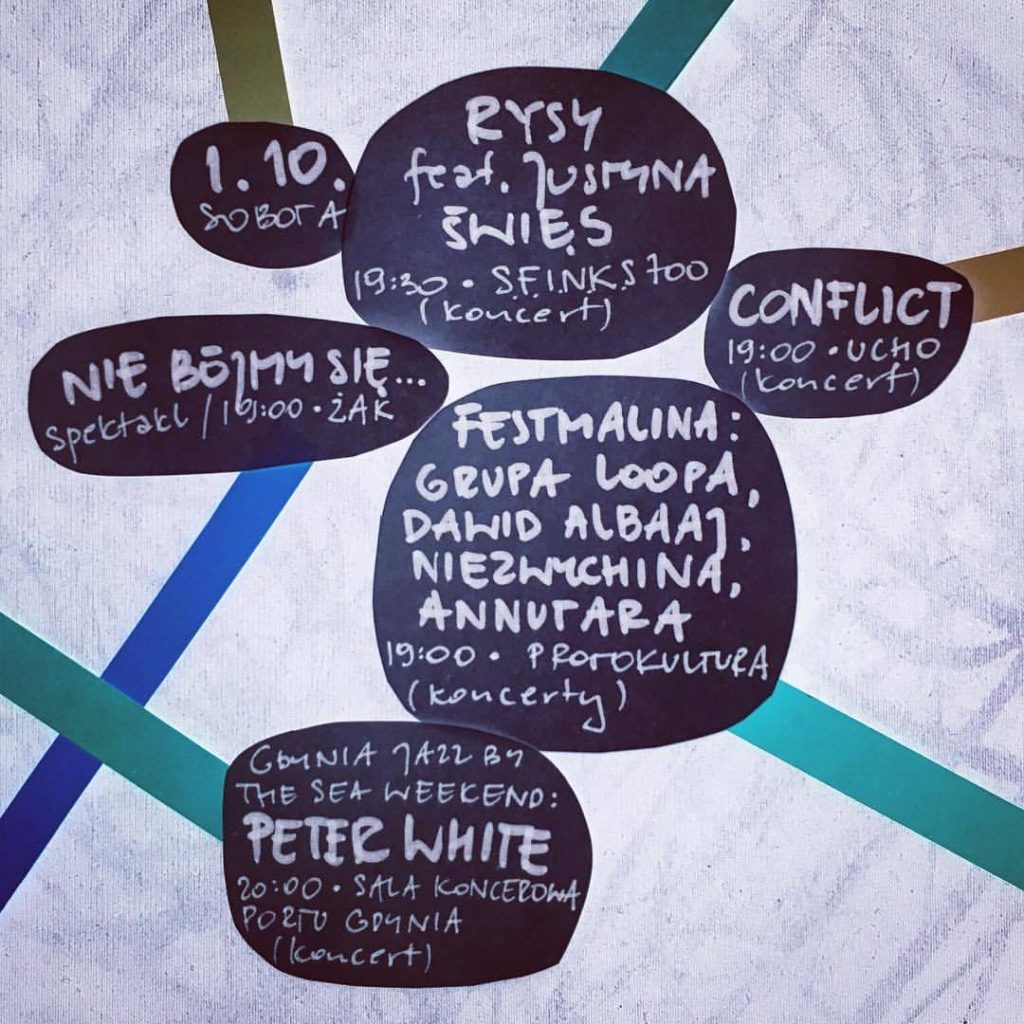 1. 10.
SOBOTA
RYSY
feat. JUSTYNA
ŚWIĘS
19:30 • S.F.I.N.K.S 700
(koncert)
CONFLICT
19:00 • UCHO
(koncert)
NIE BÓJMY SIĘ...
spektakl / 19:00 • ŻAK
FESTMALINA:
GRUPA LOOPA,
DAWID ALBAAJ,
NIEZWYCHINA,
ANNUTARA
19:00 • PROTOKULTURA
(koncerty)
GDYNIA JAZZ BY
THE SEA WEEKEND:
PETER WHITE
20:00 • SALA KONCEROWA
PORTU GDYNIA
(koncert)